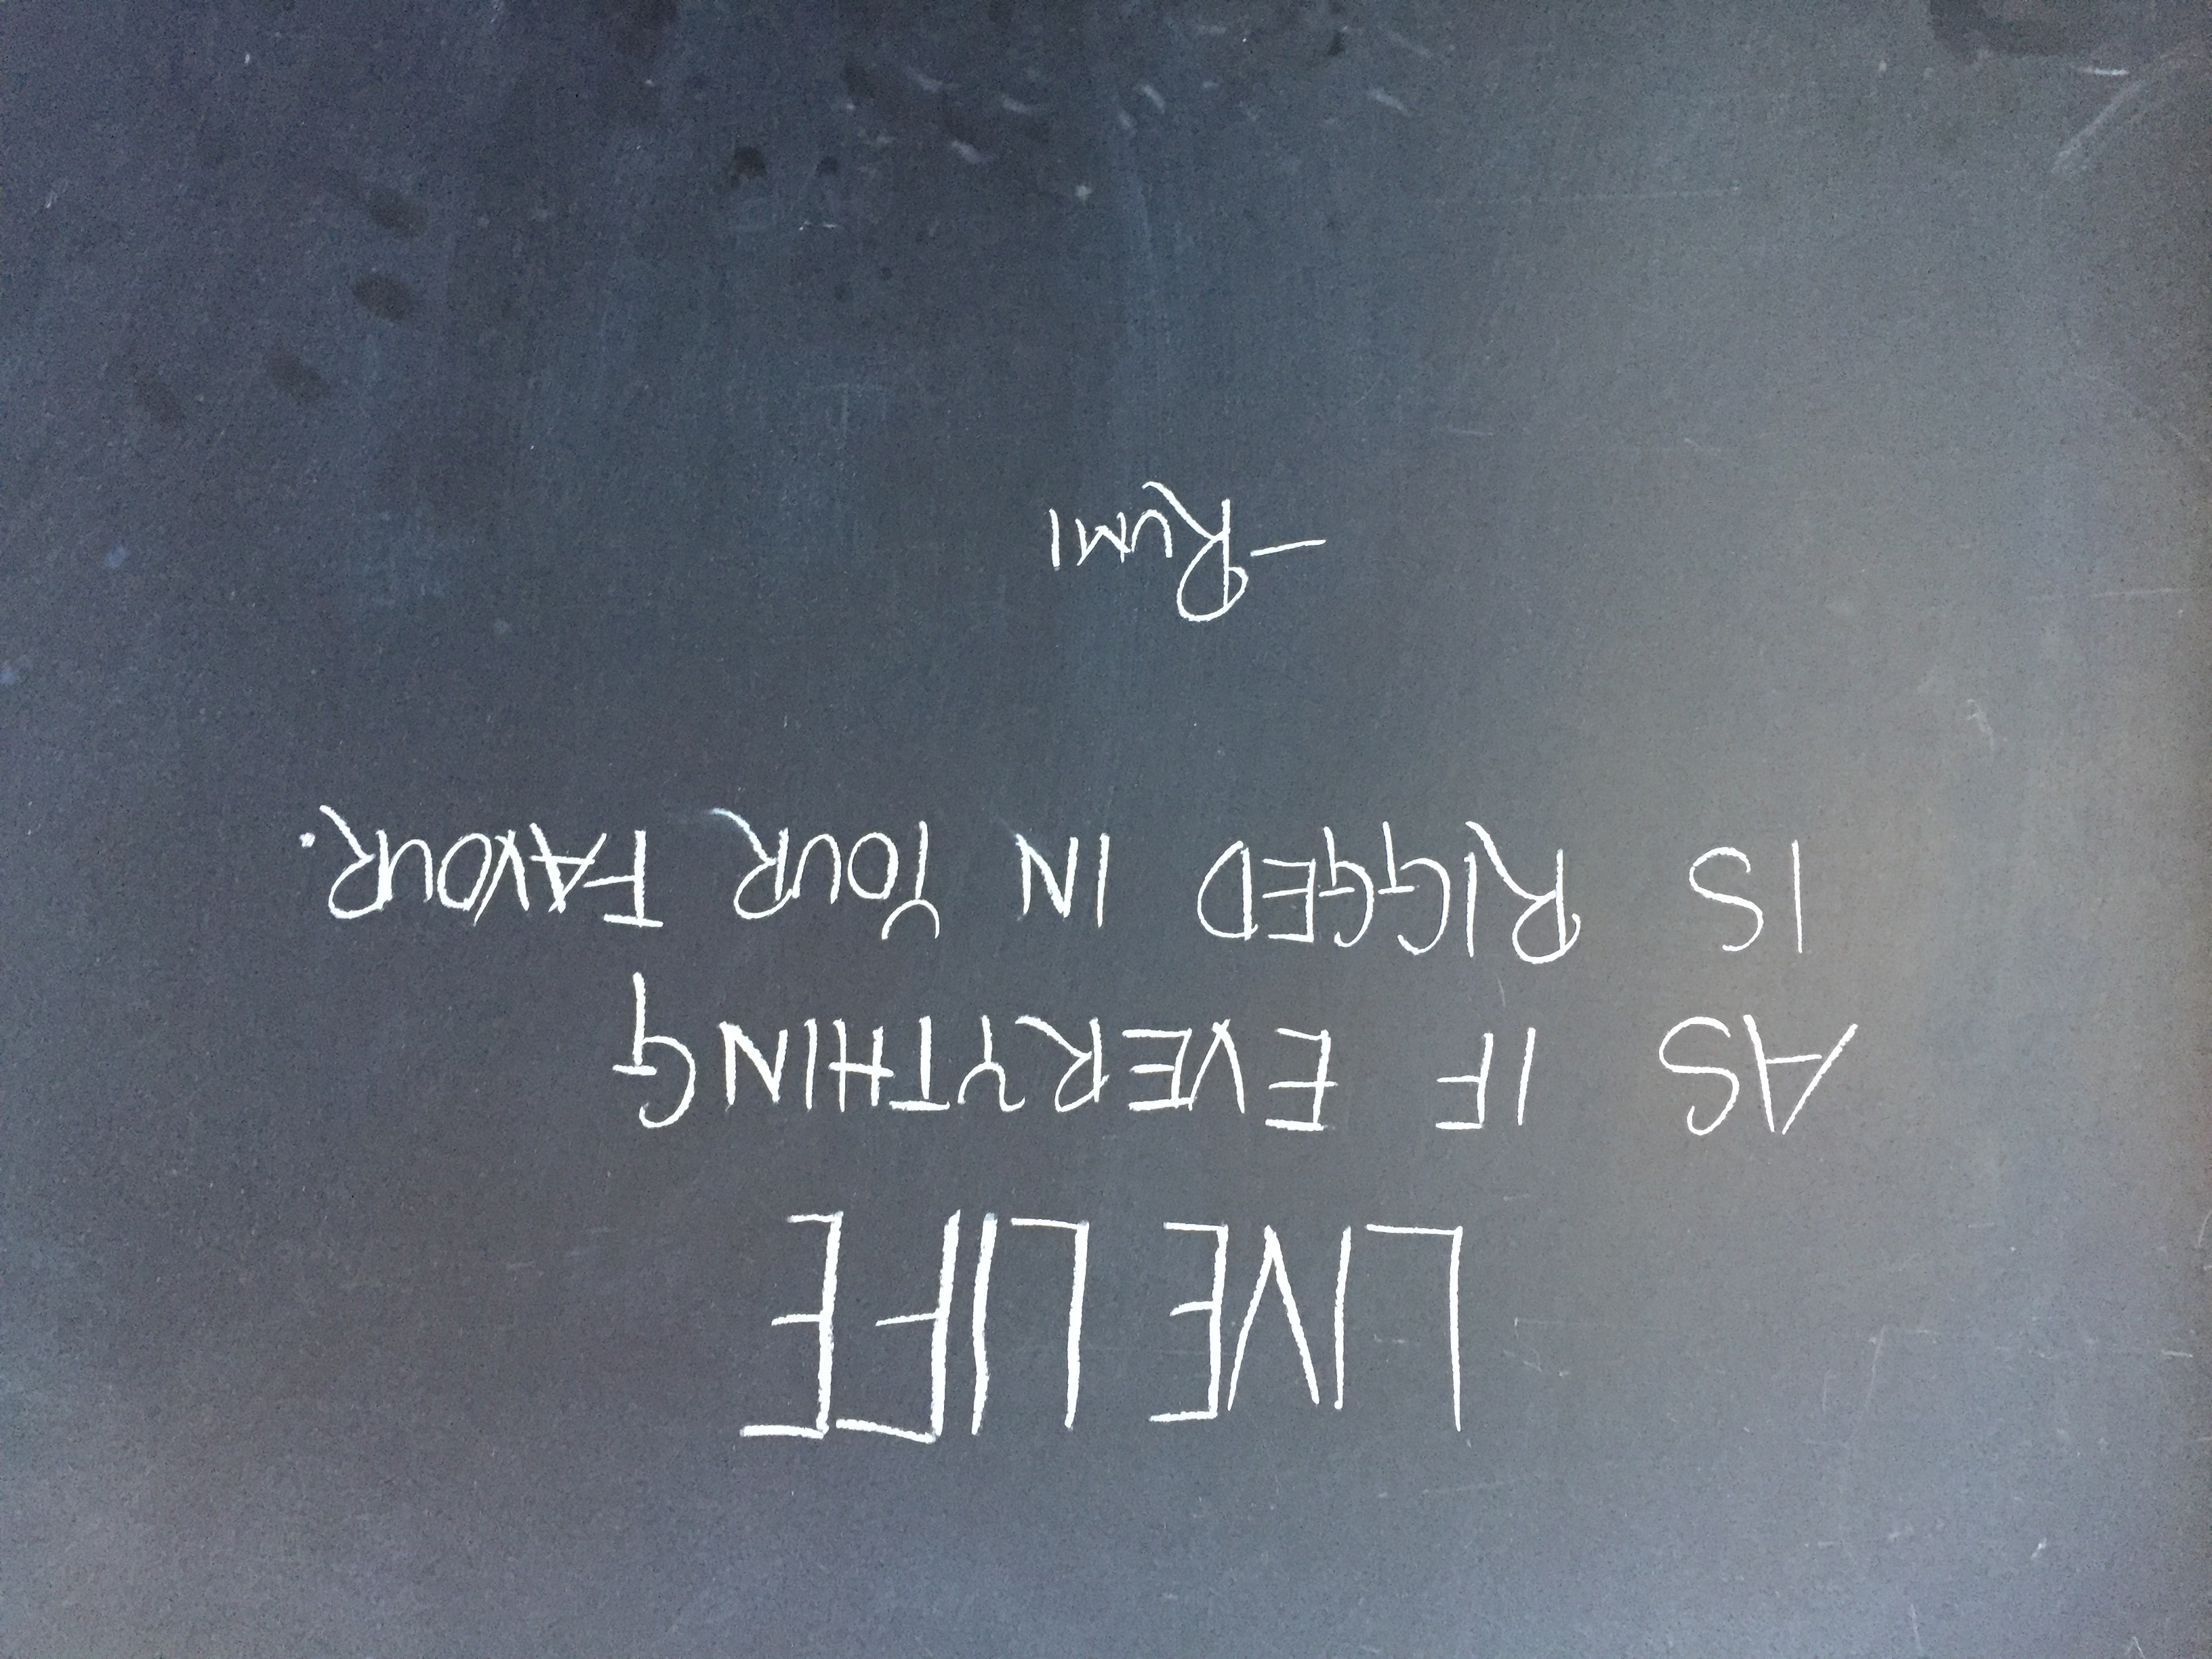 LIVE LIFE
AS IF EVERYTHING
IS RIGGED IN YOUR FAVOUR.
-RUMI